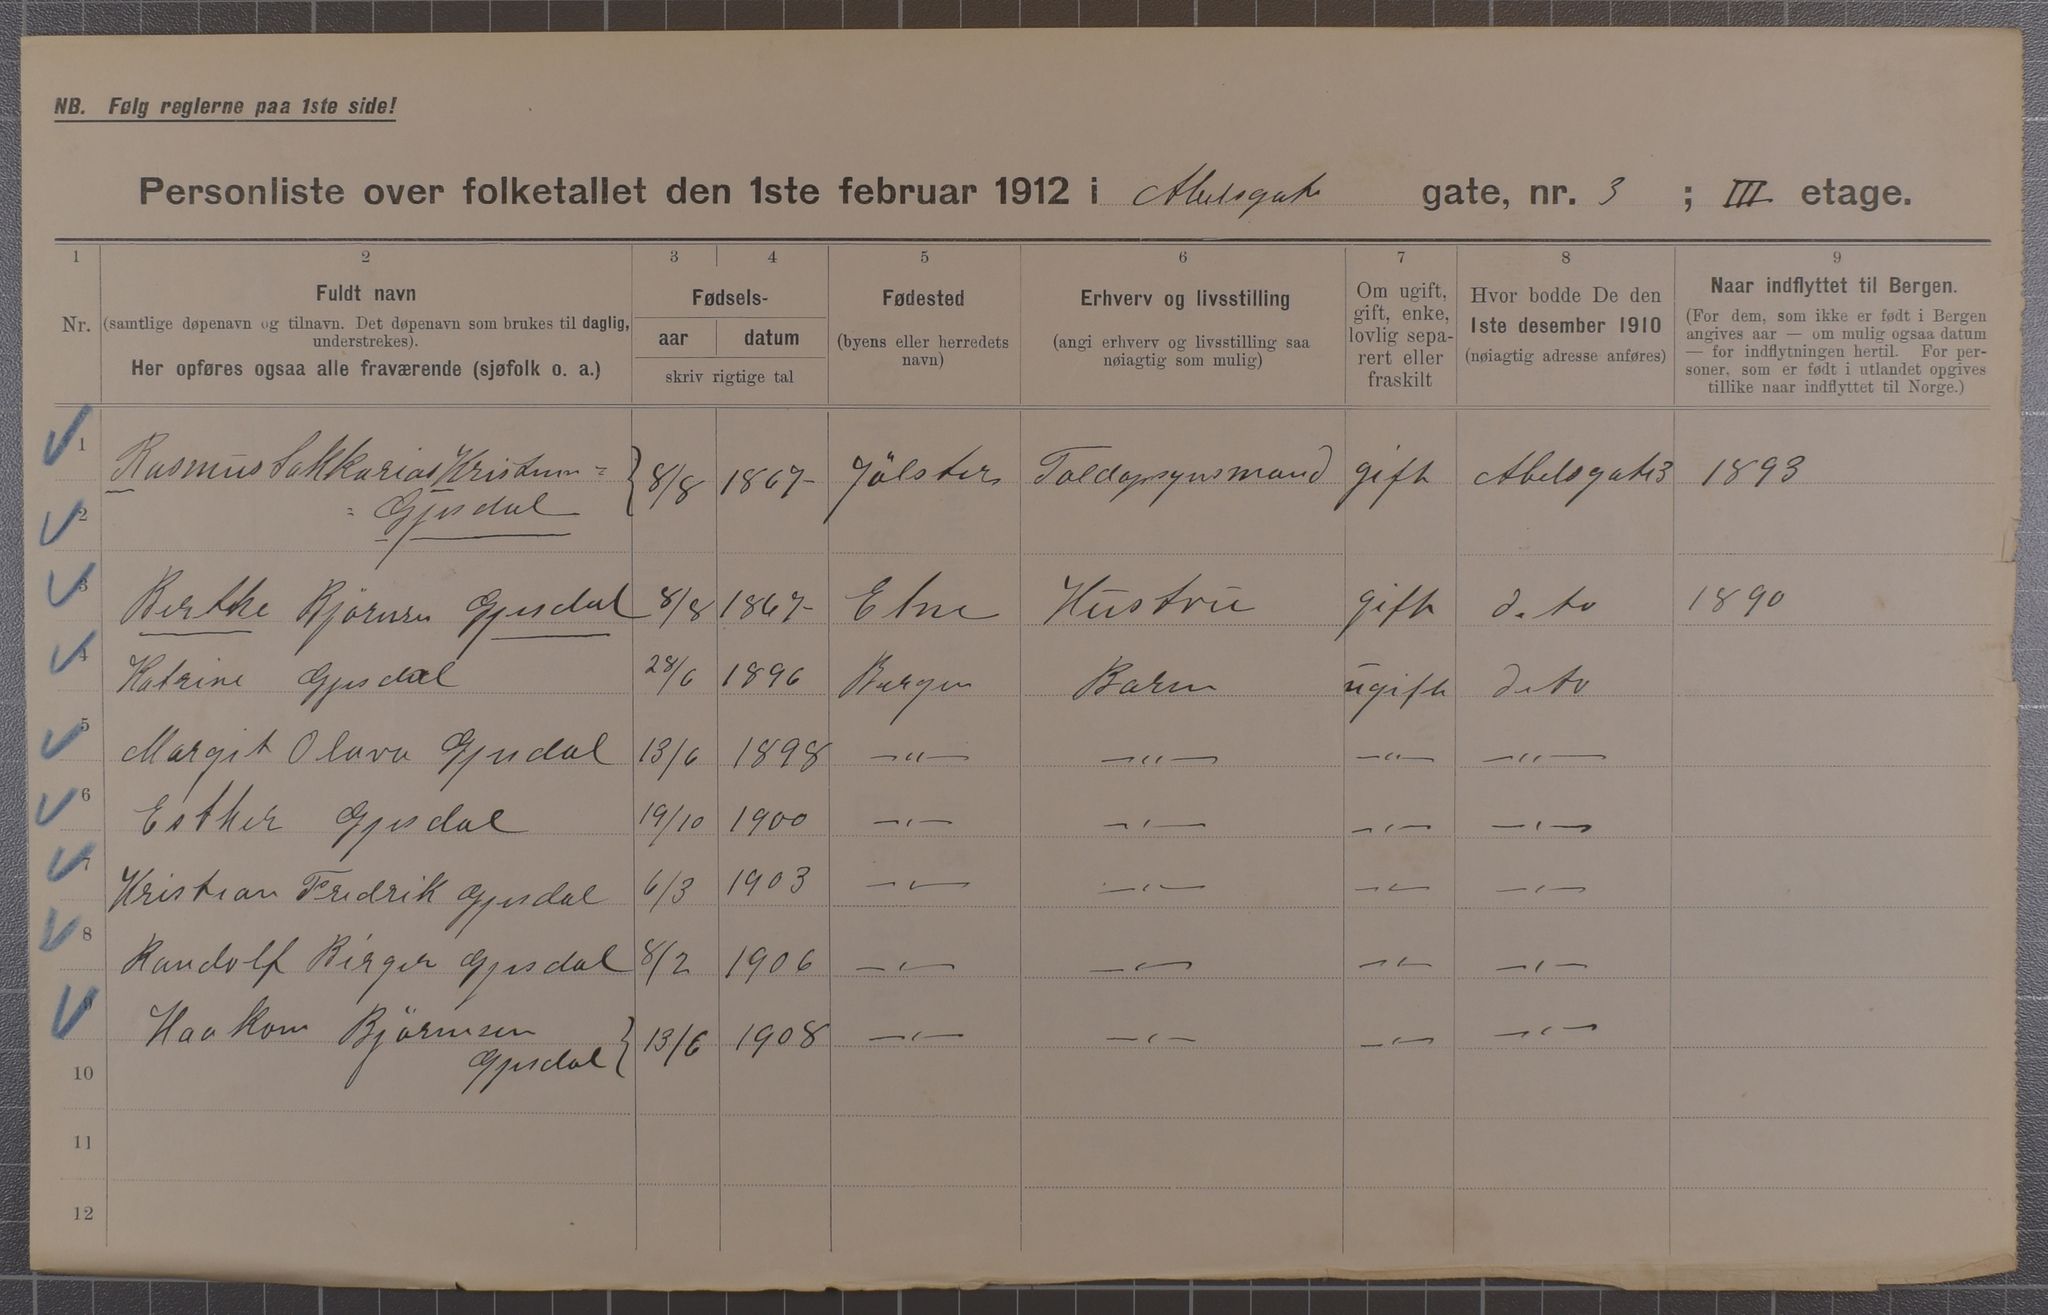 NB. Følg reglerne paa 1ste side!
Personliste over folketallet den 1ste februar 1912 i Abelsgate gate, nr. 3 ; III etage.
1 2 3 4 5 6 7 8 9
Nr.
Fuldt navn
(samtlige døpenavn og tilnavn. Det døpenavn som brukes til daglig, understrekes).
Her opføres ogsaa alle fraværende (sjøfolk o. a.)
Fødsels-
aar datum
skriv rigtige tal
Fødested
(byens eller herredets navn)
Erhverv og livsstilling
(angi erhverv og livsstilling saa nøiagtig som mulig)
Om ugift, gift, enke, lovlig separert eller fraskilt
Hvor bodde De den 1ste desember 1910
(nøiagtig adresse anføres)
Naar indflyttet til Bergen.
(For dem, som ikke er født i Bergen angives aar — om mulig ogsaa datum — for indflytningen hertil. For personer, som er født i utlandet opgives tillike naar indflyttet til Norge.)
1 Rasmus Sakkarias Kristian= 8/8 1867 Jölster Toldopsynsmand gift Abelsgate 3 1893
2 = Gjesdal
3 Berthe Björnsen Gjesdal 8/8 1867 Etne Hustru gift do to 1890
4 Katrine Gjesdal 28/6 1896 Bergen Barn ugift do to
5 Margit Olava Gjesdal 13/6 1898 —"— —"— —"— —"—
6 Esther Gjesdal 19/10 1900 —"— —"— —"— —"—
7 Kristian Fredrik Gjesdal 6/3 1903 —"— —"— —"— —"—
8 Randolf Birger Gjesdal 8/2 1906 —"— —"— —"— —"—
9 Haakon Björnsen 13/6 1908 —"— —"— —"— —"—
Gjesdal
10
11
12